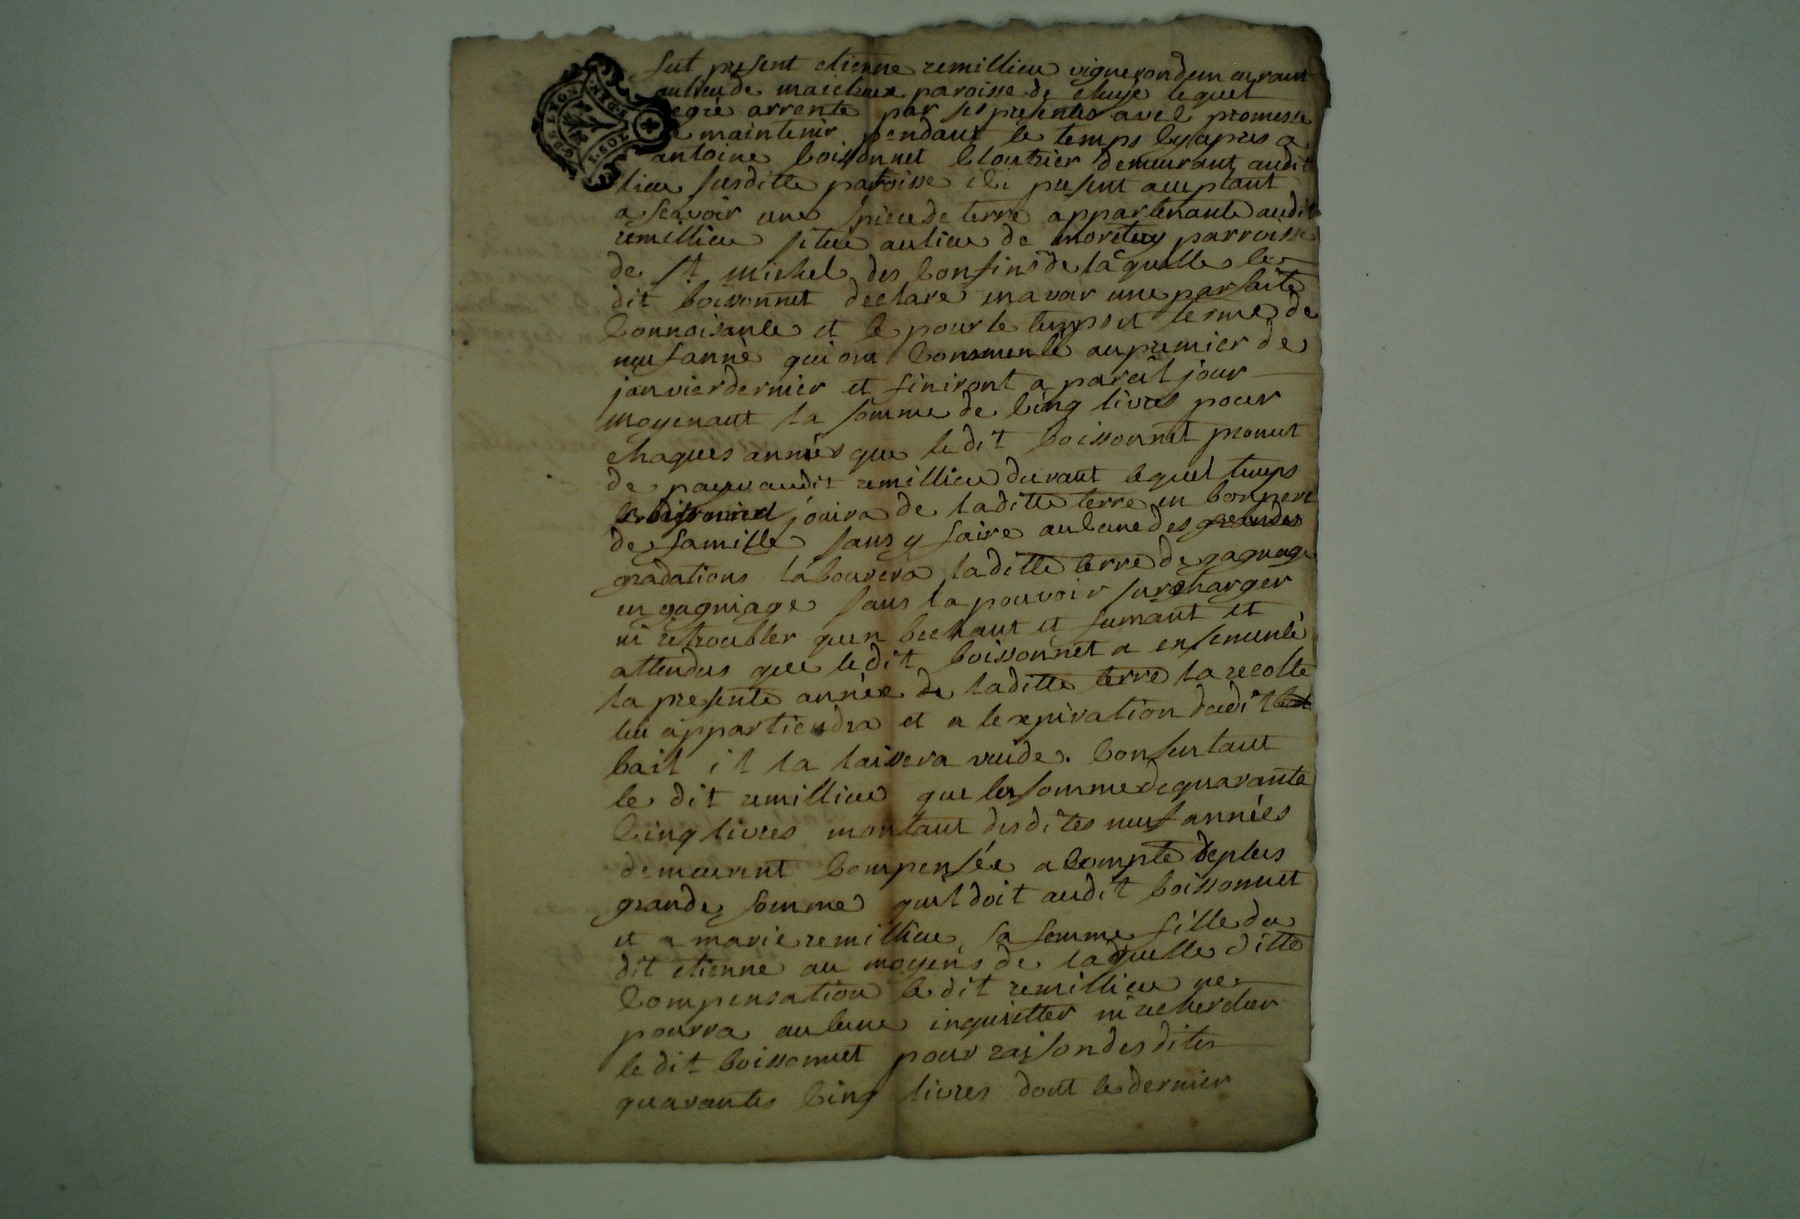 fut present etienne remillieu vigneron demeurant
au lieu de paroisse de lequel
degré arrente par ses presentes avec promesse
de maintenir pendant le temps cy apres a
antoine boissonnet cloutrier demeurant audit
lieu susditte paroisse ici present acceptant
a scavoir une piece de terre appartenante audit
remillieu situe au lieu de parroisse
de st michel des confins de laquelle le
dit boissonnet declare en avoir une parfaite
connoisance et ce pour le temps et terme de
neuf année qui ont commencé au premier de
janvier dernier et finiront a pareil jour
moyenant la somme de cinq livres pour
chaques année que le dit boissonnet promet
de payer audit remillieu durant lequel temps
le boissonnet jouira de laditte terre en bon pere
de famille sans y faire aucune des
gradations labourera laditte terre de gagnage
en gagniage sans la pouvoir surcharger
ni retroubler qu'en bechant et fumant et
attendus que le dit boissonnet a ensemencé
la presente année de laditte terre la recolte
lui appartiendra et a lexpiration dudit
bail il la laissera vuide. consentant
le dit remillieu que la somme de quarante
cinq livres montant desdites neuf années
demeurent compensée a compte de plus
grande somme quil doit audit boissonnet
et a marie remillieu sa femme fille du
dit etienne au moyens de laquelle ditte
compensation le dit remillieu ne
pourra aucune inquietter ni rechercher
le dit boissonnet pour raison desdites
quarantes cinq livres dont le dernier